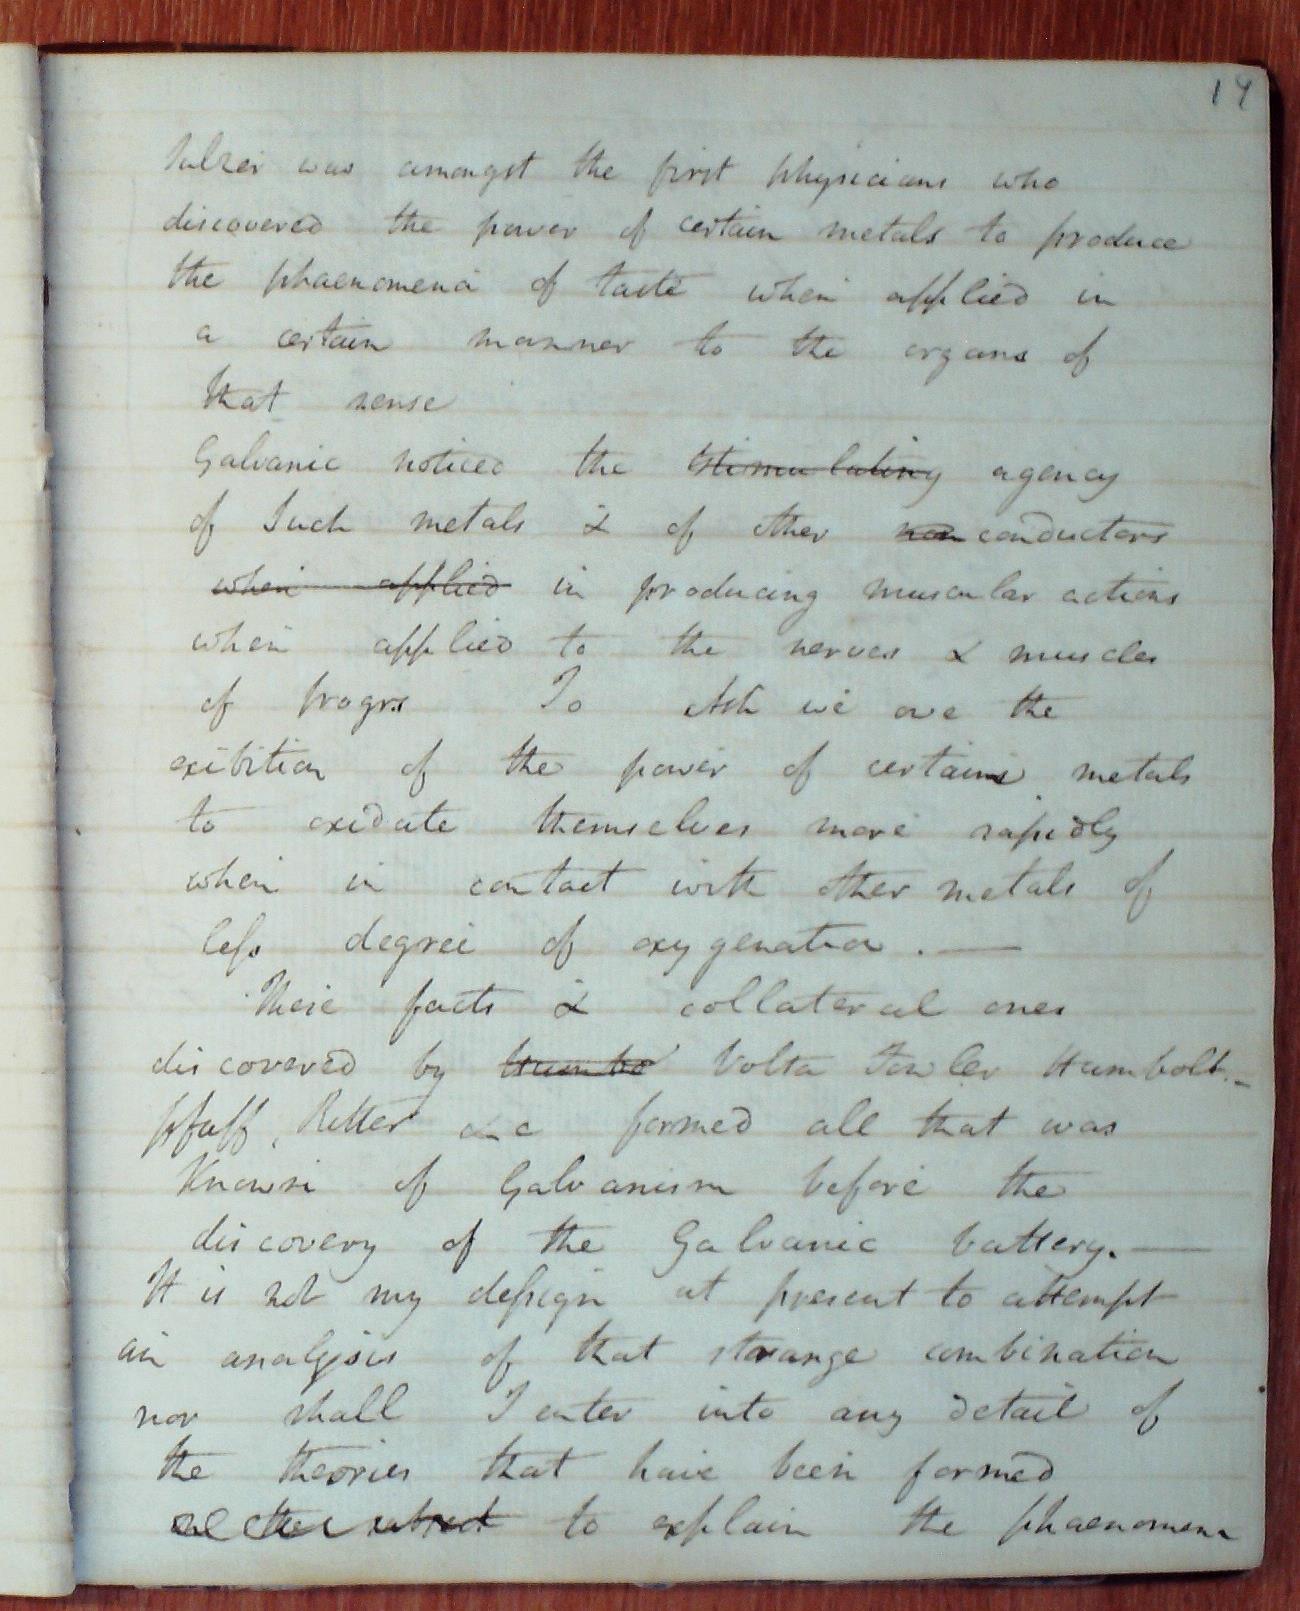 19
Sulzer was amongst the first physicians who
discovered the power of certain metals to produce
the phaenomena of taste when applied in
a certain manner to the organs of
that sense
Galvanic noticed the stimulating agency
of Such metals & of other non conductors
when applied in producing muscular actions
when applied to the nerves & muscles
of frogrs To Ash we owe the
exibition of the power of certains metals
to oxidate themselves more rapidly
when in contact with other metals of
less degree of oxygenation. —
These facts & collateral ones
discovered by Humbo Volta Fowler Humbolt. -
Pfaff, Ritter &c formed all that was
Known of Galvanism before the
discovery of the Galvanic battery. —
It is not my dessign at present to attempt
an analysis of that strange combination
nor shall I enter into any detail of
the theories that have been formed
to explain the phaenomena